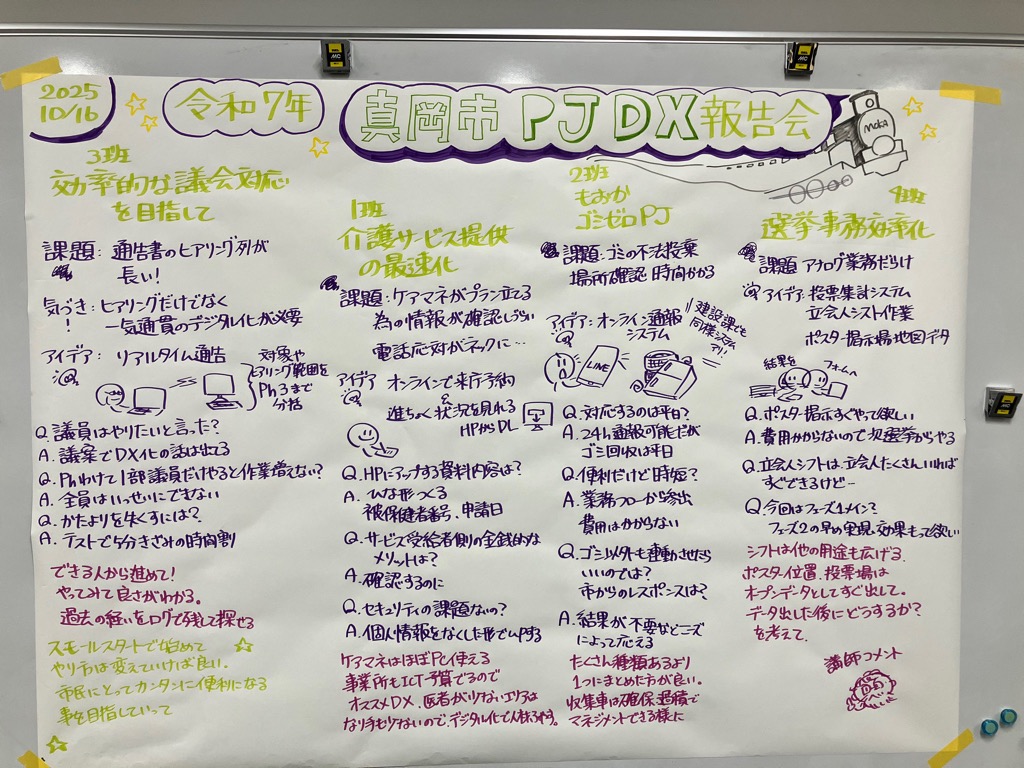 2025
10/16
令和7年
真岡市 PJ DX 報告会
MOKA
3班
効率的な議会対応
を目指して
課題：通告書のヒアリング列が
長い！
気づき：ヒアリングだけでなく
！ 一気通貫のデジタル化が必要
アイデア：リアルタイム通告
対象や
ヒアリング範囲を
Ph3まで
分括
Q. 議員はやりたいと言った？
A. 議案でDX化の話は出てる
Q. Phわけて1部議員だけやると作業増えない？
A. 全員はいっせいにできない
Q. かたよりを失くすには？
A. テストで5分きざみの時間割
できる人から進めて！
やってみて良さがわかる。
過去の経いをログで残して探せる
スモールスタートで始めて
やり方は変えていけば良い。
市民にとってカンタンに便利になる
事を目指していって
1班
介護サービス提供
の最速化
課題：ケアマネがプラン立てる
為の情報が確認しづらい
電話応対がネックに…
アイデア オンラインで来庁予約
&
進ちょく状況を見れる
HPからDL
Q. HPにアップする資料内容は？
A. ひな形つくる
被保健者番号、申請日
Q. サービス受給者側の金銭的な
メリットは？
A. 確認するのに
Q. セキュリティの課題ないの？
A. 個人情報をなくした形でUPする
ケアマネはほぼPC使える
事業所もICT予算でるので
オススメDX。医者が少ないエリアは
なり手も少ないので、デジタル化で人材
2班
もおか
ゴミゼロPJ
課題：ゴミの不法投棄
場所確認 時間かかる
アイデア：オンライン通報
システム
建設課でも
同様システム
アリ！
LINE
Q. 対応するのは平日？
A. 24h通報可能だが
ゴミ回収は平日
Q. 便利だけど時短？
A. 業務フローから算出
費用はかからない
Q. ゴミ以外も連動させたら
いいのでは？
市からのレスポンスは？
A. 結果が不要などニーズ
によって応える
たくさん種類あるより
1つにまとめた方が良い。
収集車は確保、過積で
マネジメントできる様に
4班
選挙事務効率化
課題 アナログ業務だらけ
アイデア：投票集計システム
立会人シフト作業
ポスター掲示場地図データ
結果を
フォームへ
Q. ポスター掲示すぐやって欲しい
A. 費用かからないので次選挙からやる
Q. 立会人シフトは、立会人たくさんいれば
すぐできるけど…
Q. 今回はフェーズ1メイン？
フェーズ2の早め実現、効果もって欲しい
シフトは他の用途も広げる
ポスター位置、投票場は
オープンデータとしてすぐ出して。
データ出した後にどうするか？
を考えて。
講師コメント